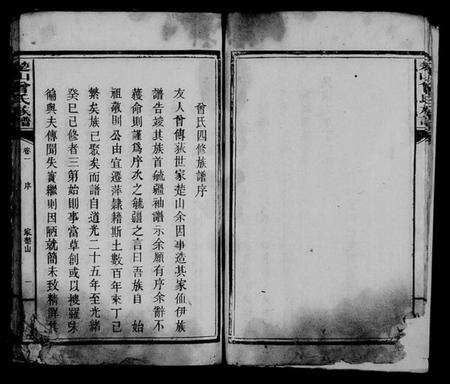 曾氏四修族譜序
友人曾傳荻世家楚山余因事造其家仙伊族
譜告竣其族首毓疆袖譜示余願有序余辭不
獲命則謹為序次之毓疆之言曰吾族自始
祖敬則公由宜遷萍隸籍斯土數百年來丁已
繁矣族已聚矣而譜自道光二十五年至光緒
癸巳已修者三第始則事當草創或以搜羅未
徧與夫傳聞失實繼則因陋就簡未致精詳其
楚山曾氏族譜
卷一
序
家楚山
一